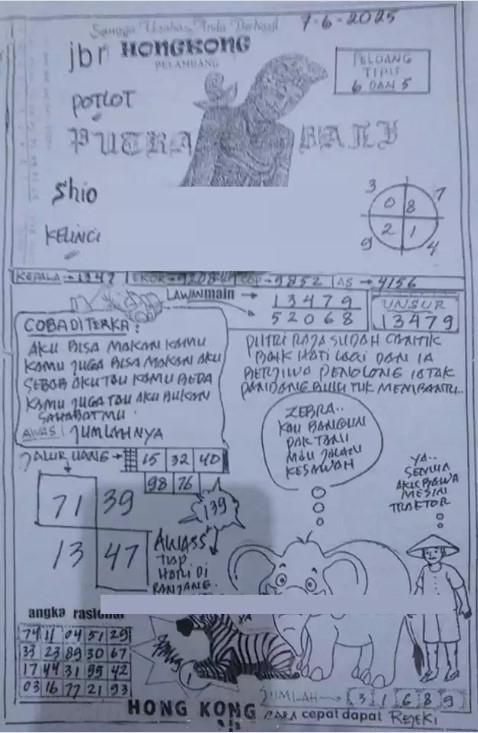 Semoga Usaha Anda Berhasil
7-6-2025
jbr HONGKONG
PELAMBANG
PELUANG
TIPIS
6 DAN 5
POTLOT
PUTRA BALI
Shio
KELINCI
3 7
0 8
2 1
9 4
KEPALA → 1347 EKOR → COP → 9852 AS → 4156
LAWAN main → 13479
52068
UNSUR
13479
COBA DITERKA :
AKU BISA MAKAN KAMU
KAMU JUGA BISA MAKAN AKU
SEBAB AKU TAU KAMU BEDA
KAMU JUGA TAU AKU BUKAN
SAHABATMU
AWAS! JUMLAHNYA
PUTRI RAJA SUDAH CANTIK
BAIK HATI LAGI DAN IA
BERJIWA PENOLONG IA TAK
PANDANG BULU TUK MEMBANTU..
ZEBRA..
KAU BANGUNI
PAK TANI
MAU JALAN
KESAWAH
YA..
SEMUA
AKU BAWA
MESIN
TRAKTOR
JALUR UANG → 15 32 40
98 76
139
71 39
13 47
AWASS
TIAP
HARI DI
PANJANG
angka rasional
74 11 04 51 29
33 23 89 30 67
17 44 31 99 42
03 16 77 21 93
YA
JUMLAH → 3 1 6 8 9
HONG KONG
!!!
CARA cepat dapat REJEKI